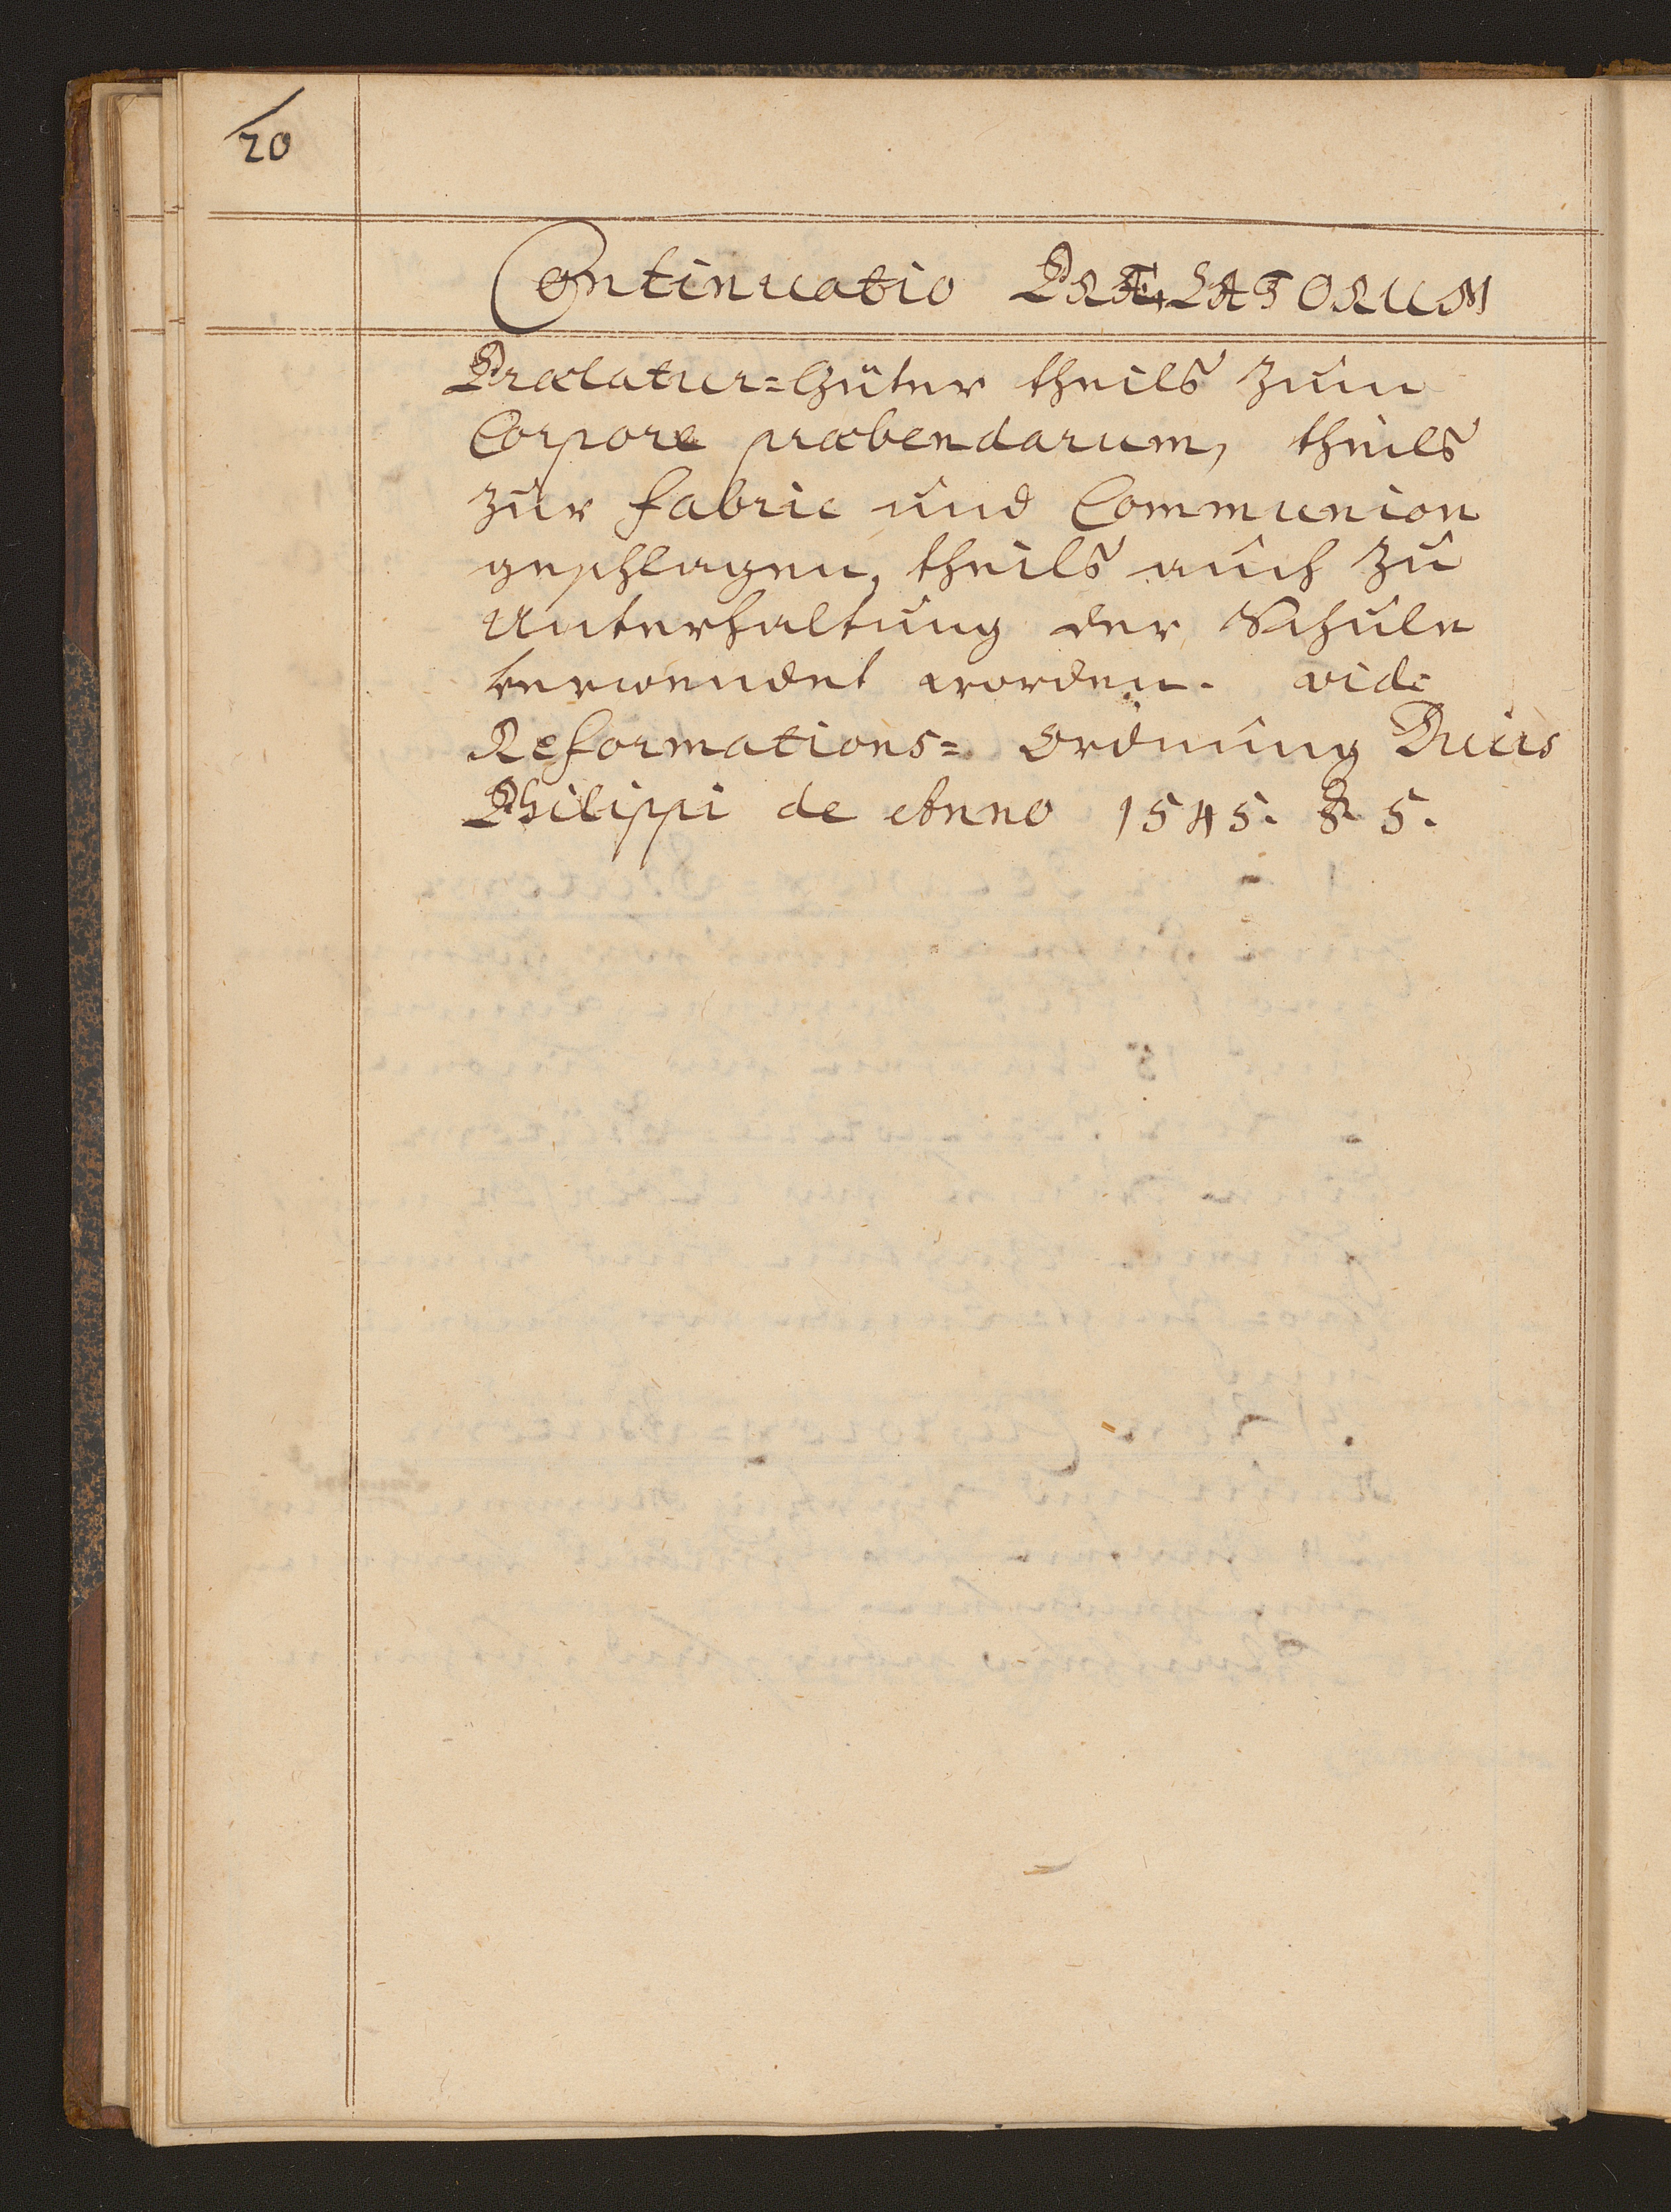 20
Continuatio PRÆLATORUM
Prælatur=Güter theils zum
Corpore præbendarum, theils
zur fabric und Communion
geschlagen, theils auch zu
Unterhaltung der Schule
verwendet worden. vid:
Reformations= Ordnung Ducis
Philippi de Anno 1545. § 5.